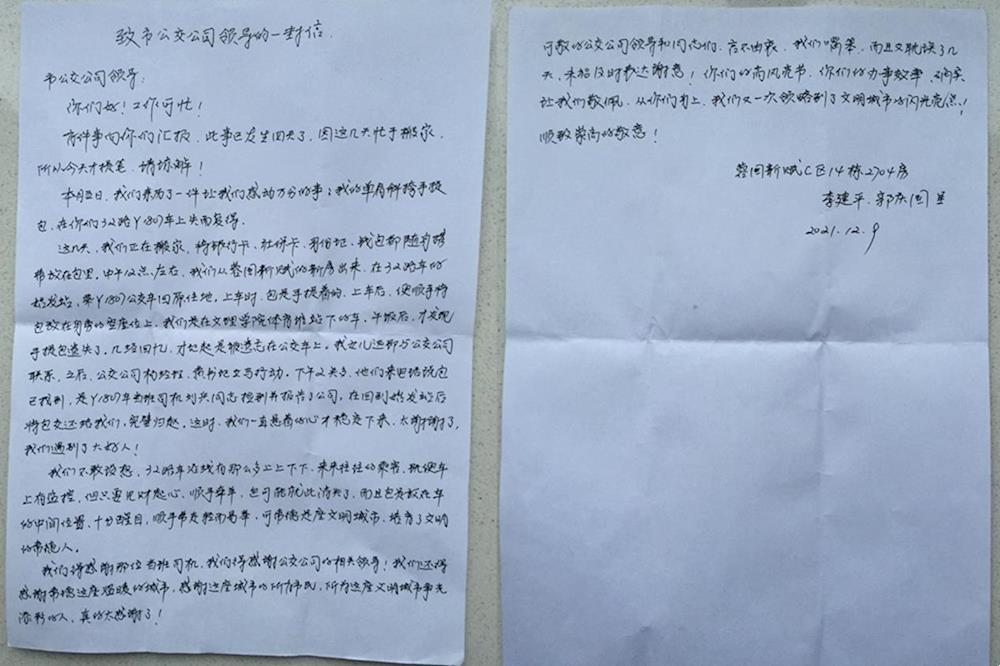 致市公交公司领导的一封信
市公交公司领导:
你们好!工作可忙!
有件事向你们汇报,此事已发生四天了,因这几天忙于搬家,
所以今天才提笔,请谅解!
本月5日,我们亲历了一件让我们感动万分的事:我的单肩斜挎手提
包,在你们32路Y1807车上失而复得。
这几天,我们正在搬家,将银行卡、社保卡、身份证、钱包都随身携
带放在包里。中午12点左右,我们从蓉国新赋的新房出来,在32路车的
始发站,乘Y1807公交车回原住地。上车时,包是手提着的,上车后,便顺手将
包放在身旁的空座位上。我们是在文理学院体育馆站下的车,午饭后,才发现
手提包遗失了。几经回忆,才想起是被遗忘在公交车上。我女儿迅即与公交公司
联系,之后,公交公司的经理、书记立马行动。下午2点多,他们来电话说包
已找到,是Y1807车当班司机刘兴同志捡到并报告了公司,在回到始发站后
将包交还给我们,完璧归赵。这时,我们一直悬着的心才稳定下来,太谢谢了,
我们遇到了大好人!
我们不敢设想,32路车沿线有那么多上上下下、来来往往的乘客,既便车
上有监控,但只要见财起心、顺手牵羊,包可能就此消失了,而且包是放在车
的中间位置,十分醒目,顺手带走轻而易举,可常德是座文明城市,培育了文明
的常德人。
我们得感谢那位当班司机,我们得感谢公交公司的相关领导!我们还得
感谢常德这座温暖的城市,感谢这座城市的所有市民,所有为这座文明城市争光
添彩的人,真的太感谢了!
可敬的公交公司领导和同志们,言不由衷,我们嘴笨,而且又耽误了几
天,未能及时表达谢意!你们的高风亮节,你们的办事效率,
让我们敬佩,从你们身上,我们又一次领略到了文明城市的闪光亮点!
顺致崇高的敬意!
蓉国新赋C区14栋2704房
李建平、郭庆国 呈
2021.12.9